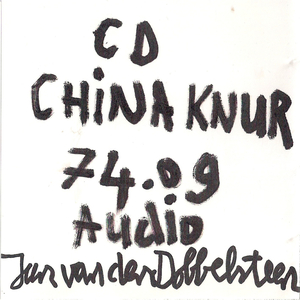 CD
CHiNA KNUR
74.09
AUDiO
Jan van den Dobbelsteen